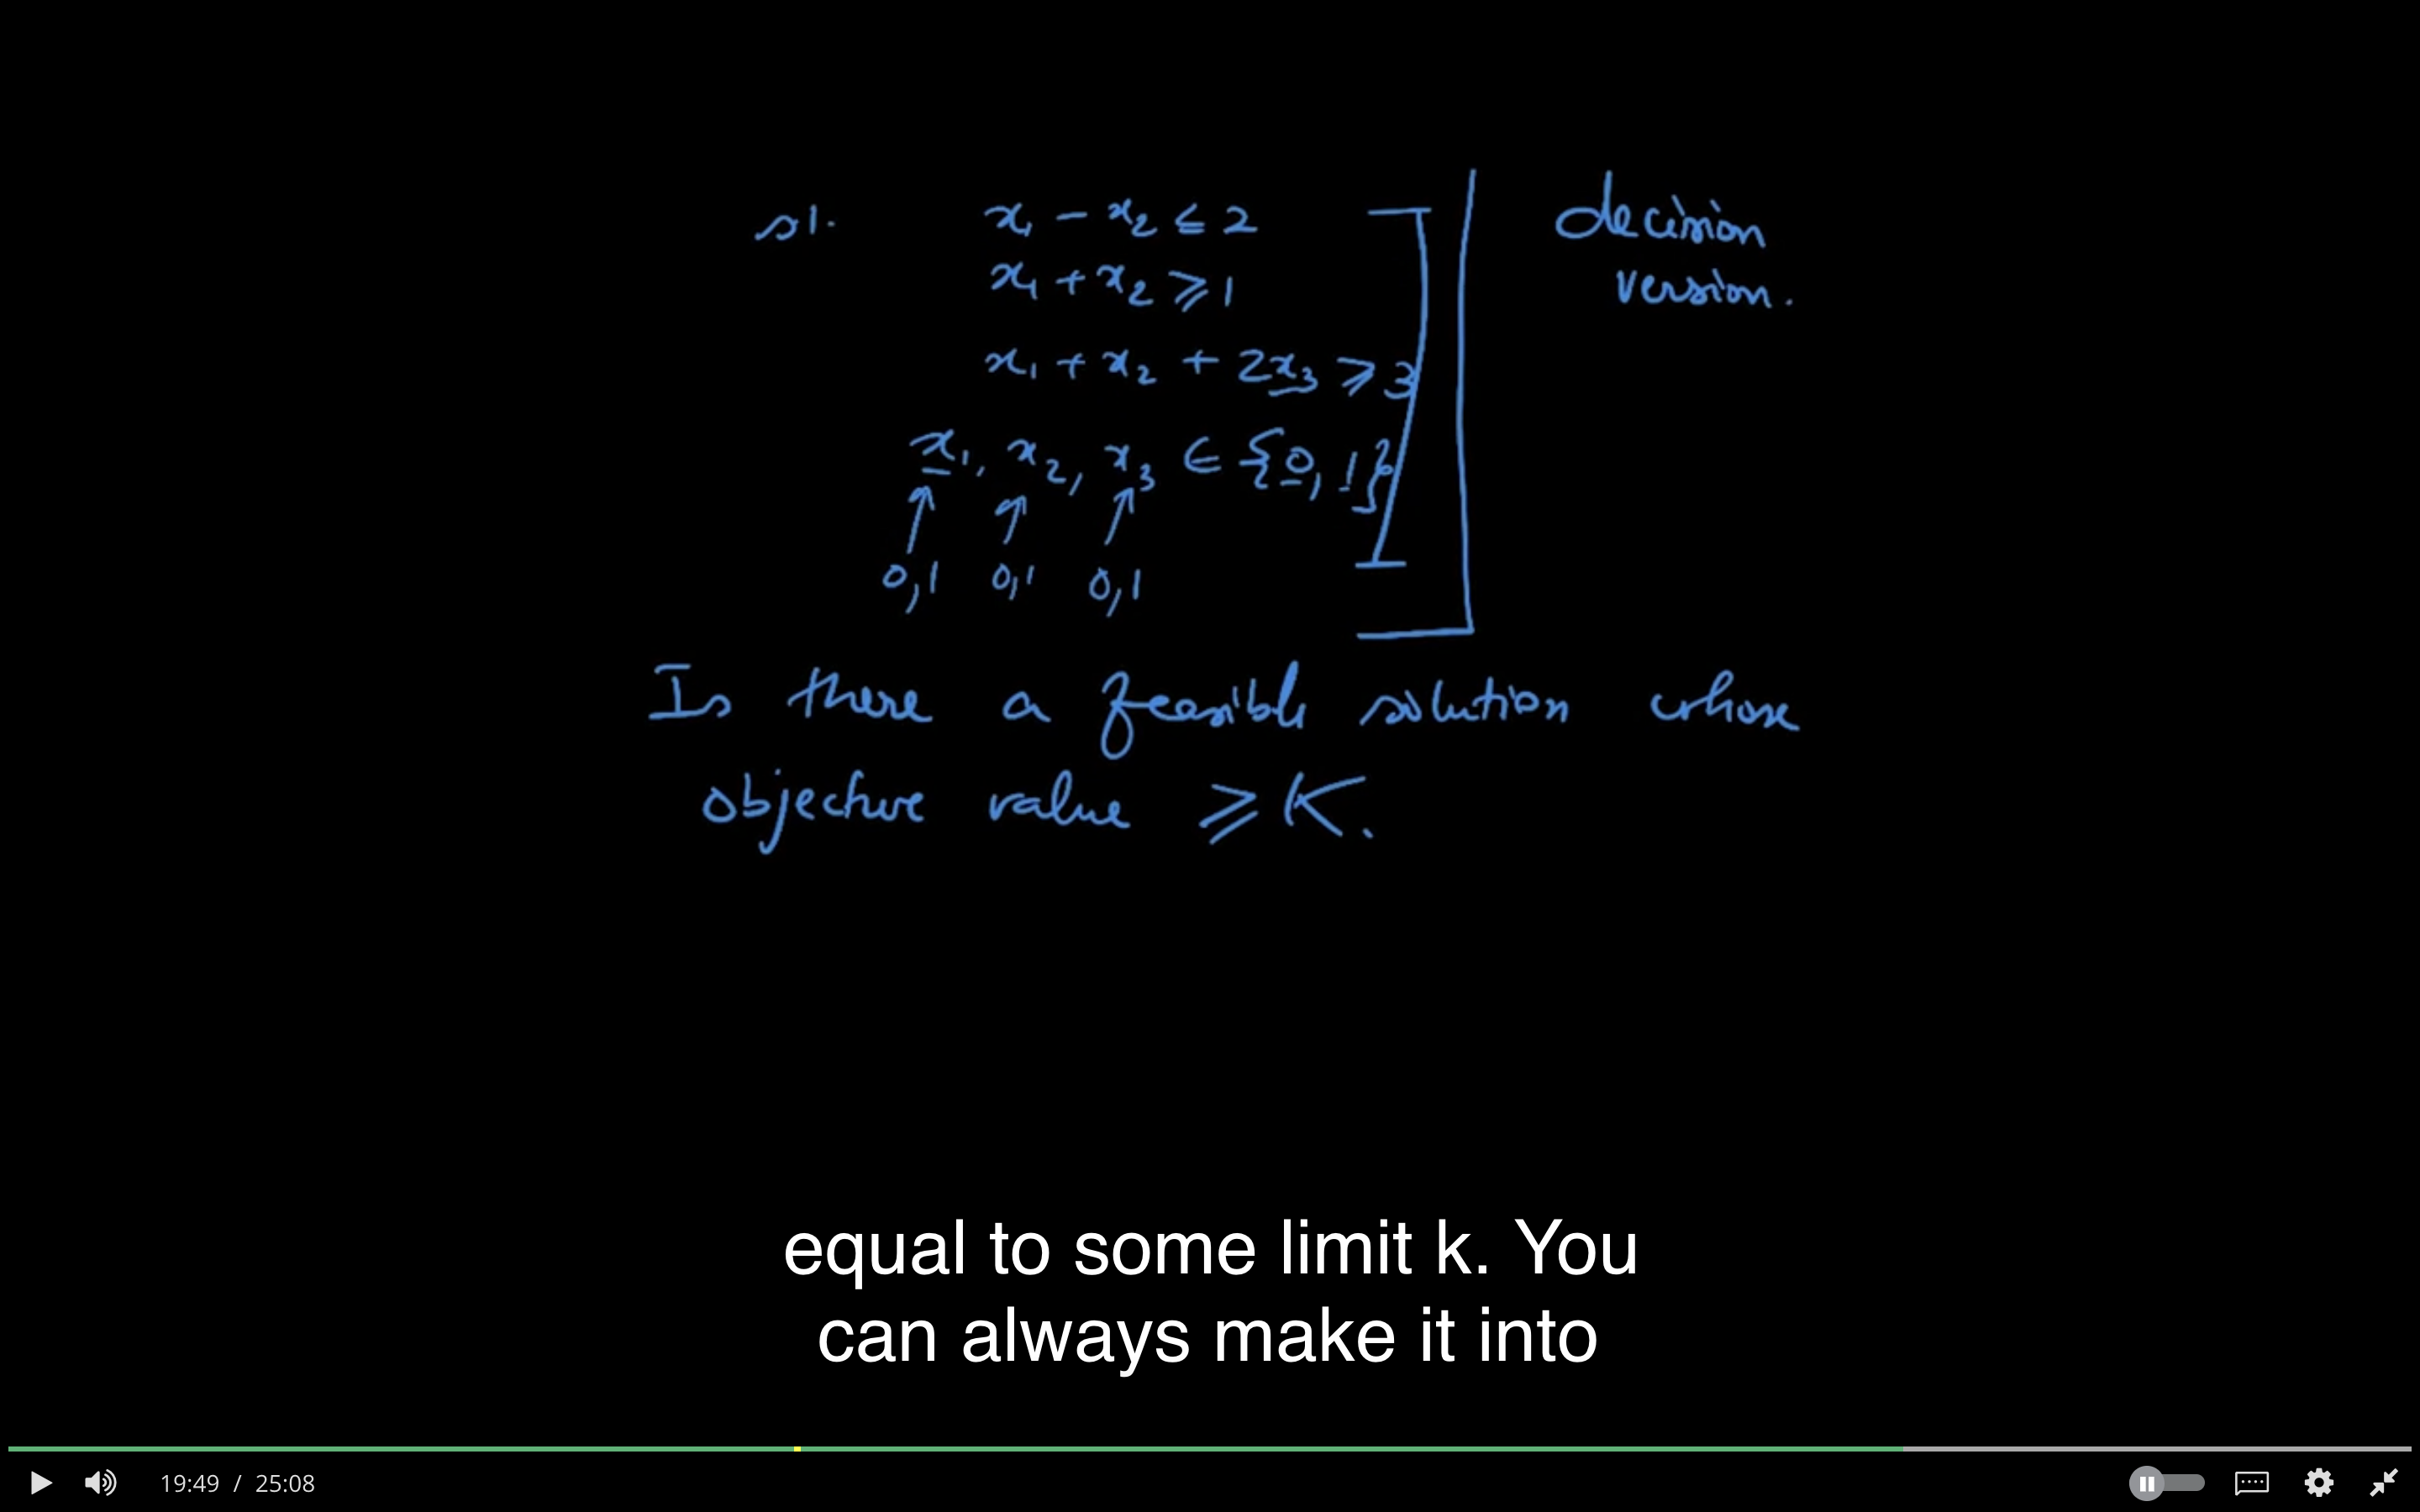 st. x₁ - x₂ ≤ 2
x₁ + x₂ ≥ 1
x₁ + x₂ + 2x₃ ≥ 3
x₁, x₂, x₃ ∈ {0, 1}
0,1 0,1 0,1
decision
version.
Is there a feasible solution whose
objective value ≥ K.
equal to some limit k. You
can always make it into
19:49 / 25:08